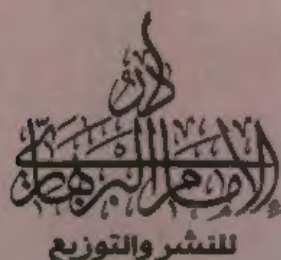 دار
الإمام البربهاري
للنشر والتوزيع